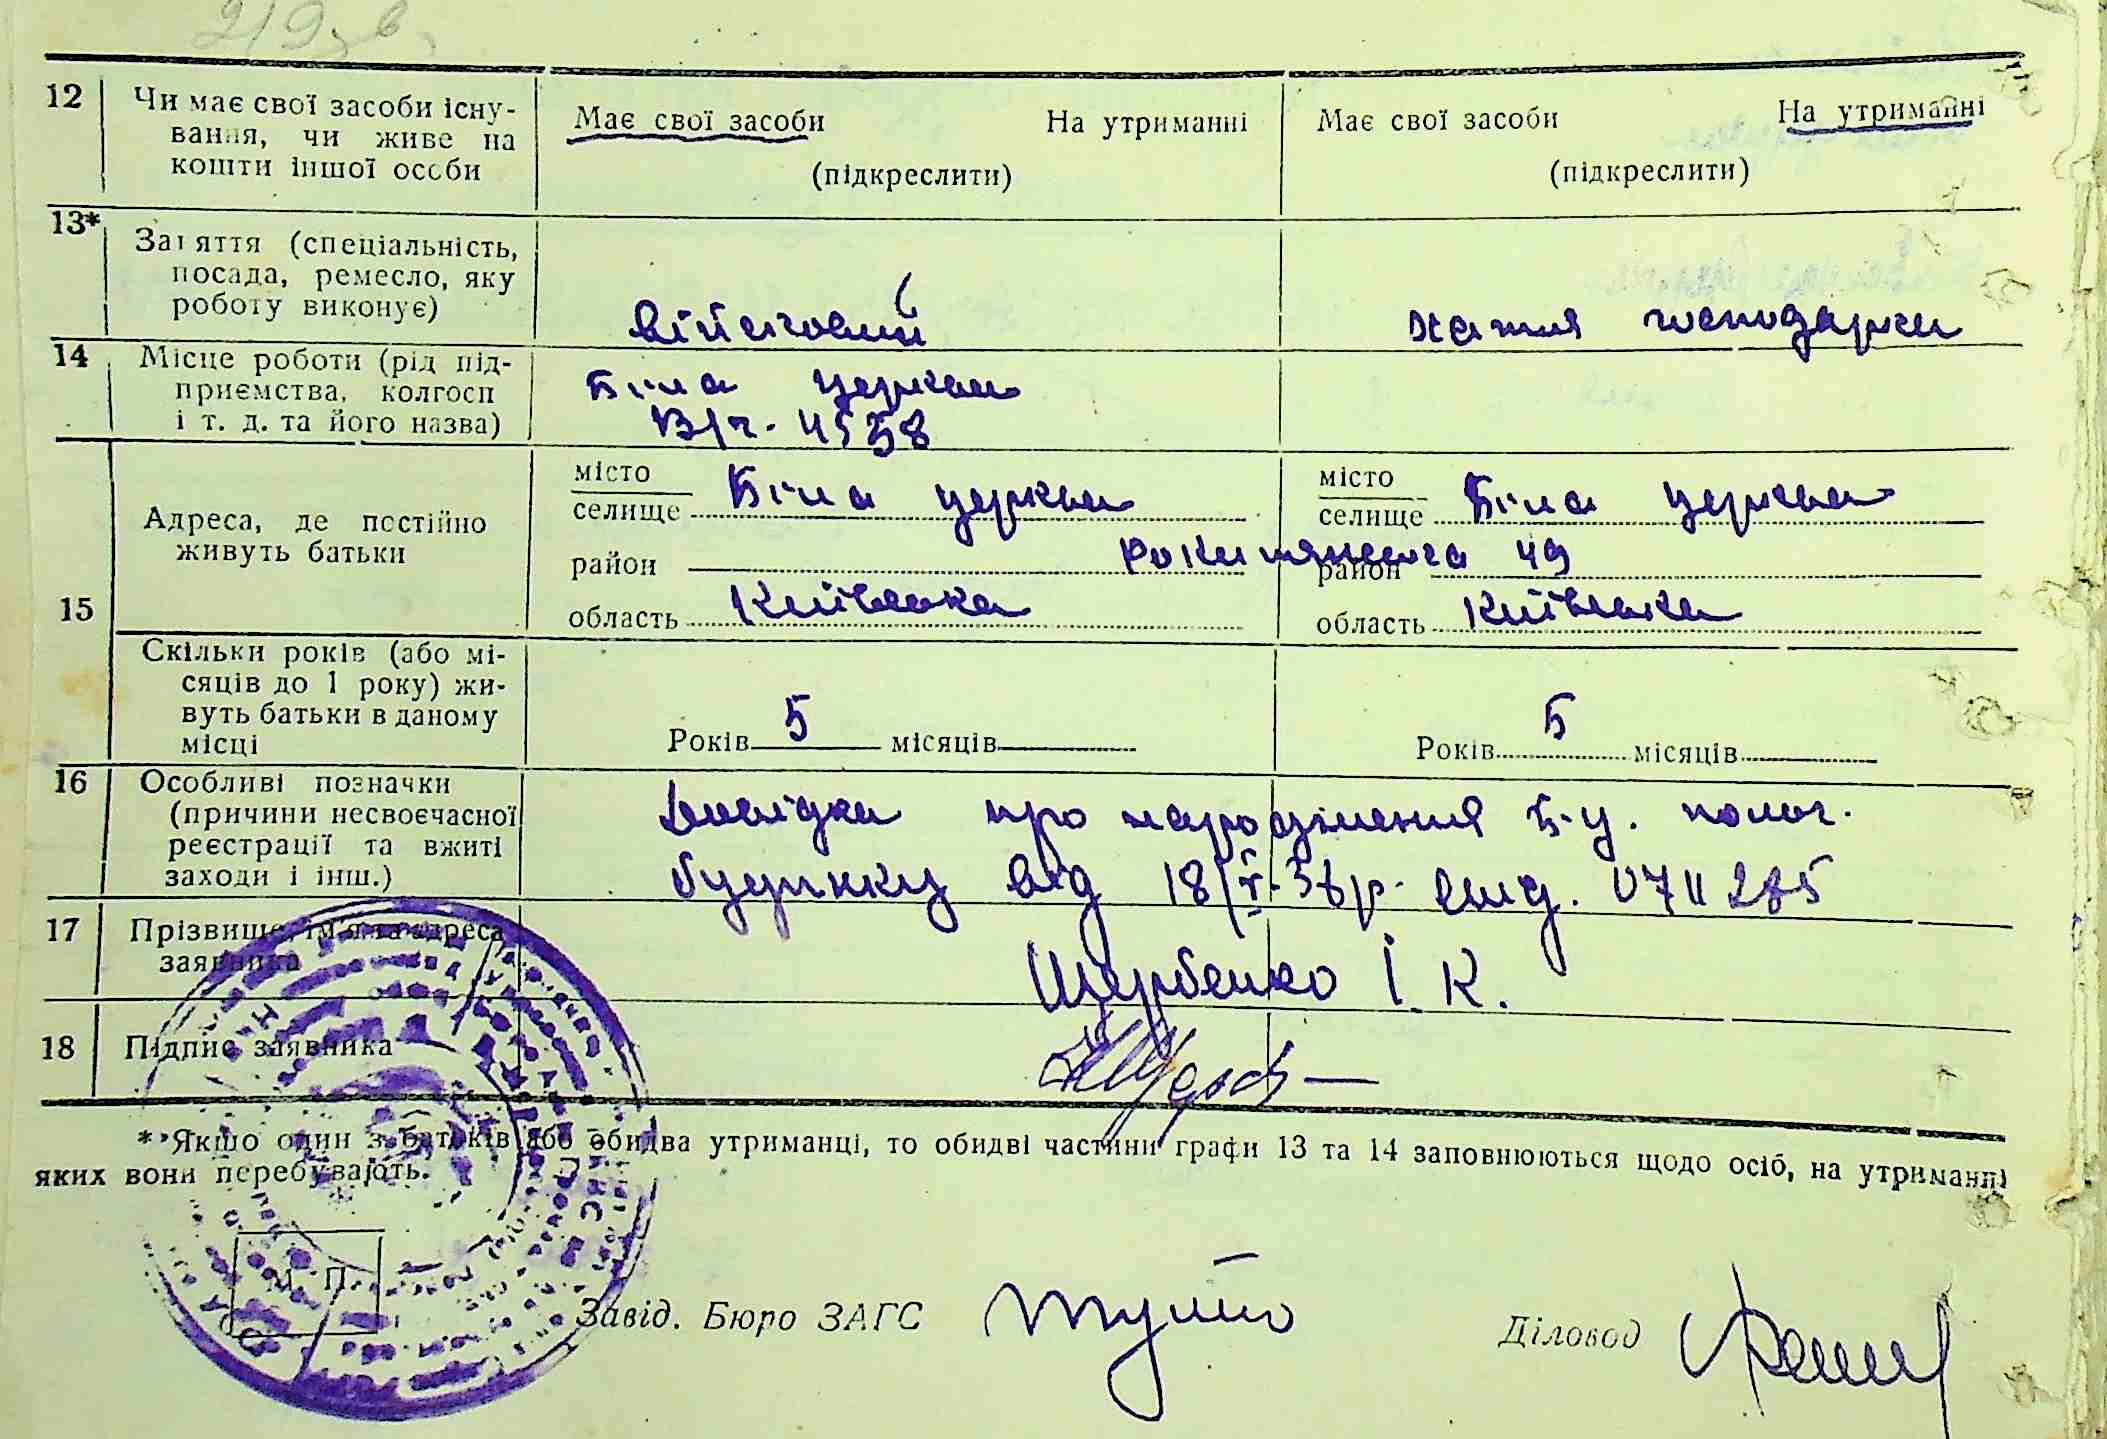 219 зв.
12 Чи має свої засоби існу- Має свої засоби На утриманні Має свої засоби На утриманні
вання, чи живе на
кошти іншої особи (підкреслити) (підкреслити)
13* Заняття (спеціальність,
посада, ремесло, яку
роботу виконує) військовий хатня господарка
14 Місце роботи (рід під- Біла церква
приємства, колгосп
і т. д. та його назва) В/ч. 4558
15
Адреса, де постійно
живуть батьки
місто Біла церква місто Біла церква
селище селище
район Рокитянська 49 район
область Київська область Київська
Скільки років (або мі-
сяців до 1 року) жи-
вуть батьки в даному
місці Років 5 місяців Років 5 місяців
16 Особливі позначки
(причини несвоєчасної Довідка про народження Б-Ц. полог.
реєстрації та вжиті
заходи і інш.) будинку від 18/V-36р.
17 Прізвище, ім'я та адреса
заявника Щербенко І. К.
18 Підпис заявника
* Якщо один з батьків або обидва утриманці, то обидві частини графи 13 та 14 заповнюються щодо осіб, на утриманні
яких вони перебувають.
М. П.
Завід. Бюро ЗАГС Діловод